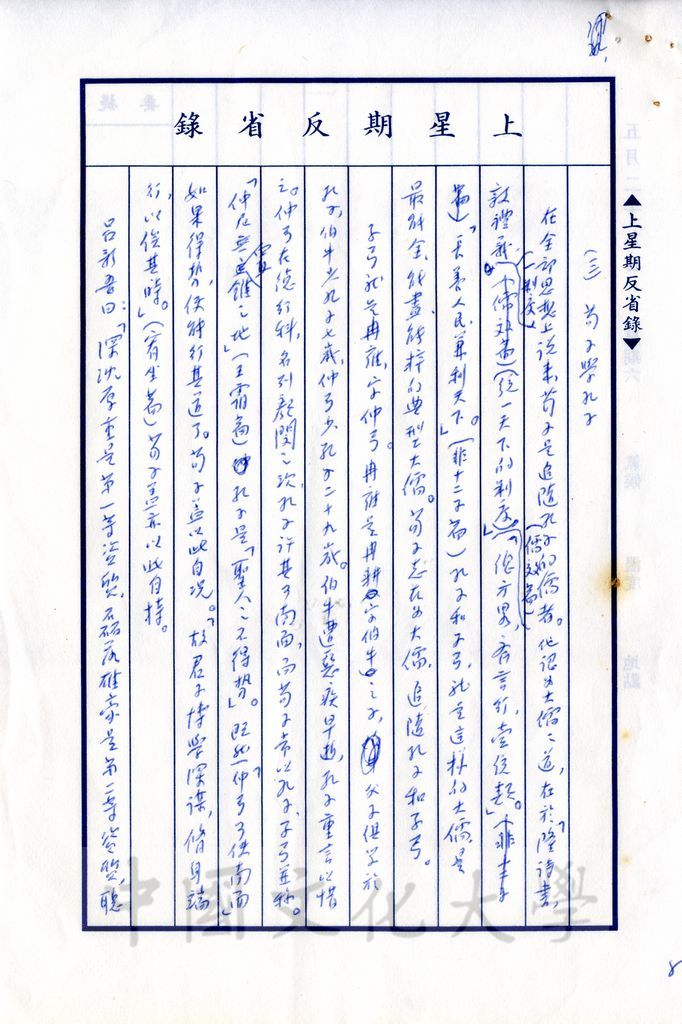 上星期反省錄
▲上星期反省錄▼
(三) 荀子學孔子
在全部思想上說來荀子是追隨孔子的儒者。他認為大儒之道,在於「隆詩書,
敦禮義」(儒效篇)「一制度」(統一天下的制度)(儒效篇)「總方略,齊言行,壹統類。」(非十二子
篇)「長養人民,兼利天下。」(非十二子篇)孔子和子弓,就是這樣的大儒,是
最能全、能盡、能粹的典型大儒。荀子志在為大儒,追隨孔子和子弓。
子弓就是冉雍,字仲弓。冉雍是冉耕字伯牛之子,父子俱學於
孔子,伯牛少孔子七歲,仲弓少孔子二十九歲。伯牛遭惡疾早逝,孔子重言以惜
之。仲弓在德行科,名列顏閔之次,孔子許其可南面,而荀子常以孔子、子弓並稱。
「仲尼無置錐之地」(王霸篇)孔子是「聖人之不得勢」。既然「仲弓可使南面」
如果得勢,便能行其道了。荀子蓋以此自況。「故君子博學深謀,脩身端
行,以俟其時。」(宥坐篇)荀子蓋亦以此自持。
呂新吾曰:「深沈厚重是第一等資質,磊落雄豪是第二等資質,聰
中國文化大學
8